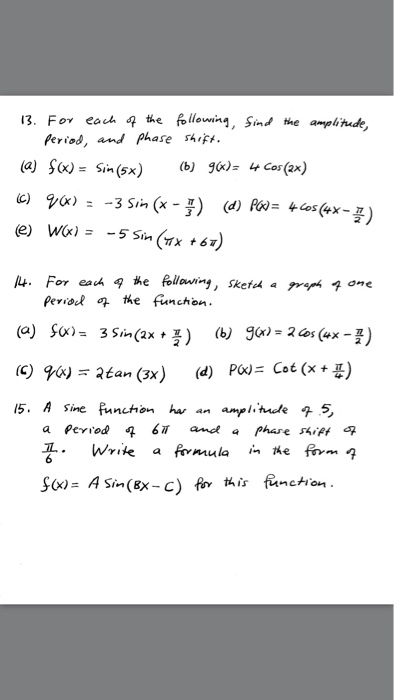 13. For each of the following, find the amplitude,
Period, and phase shift.
(a) f(x) = Sin(5x) (b) g(x) = 4 Cos(2x)
(c) q(x) = -3 Sin (x - π/3) (d) P(x) = 4 Cos (4x - π/2)
(e) W(x) = -5 Sin (πx + 6π)
14. For each of the following, sketch a graph of one
Period of the function.
(a) f(x) = 3 Sin(2x + π/2) (b) g(x) = 2 Cos (4x - π/2)
(c) q(x) = 2 tan (3x) (d) P(x) = Cot (x + π/4)
15. A sine function has an amplitude of 5,
a Period of 6π and a phase shift of
π/6. Write a formula in the form of
f(x) = A Sin(Bx - C) for this function.